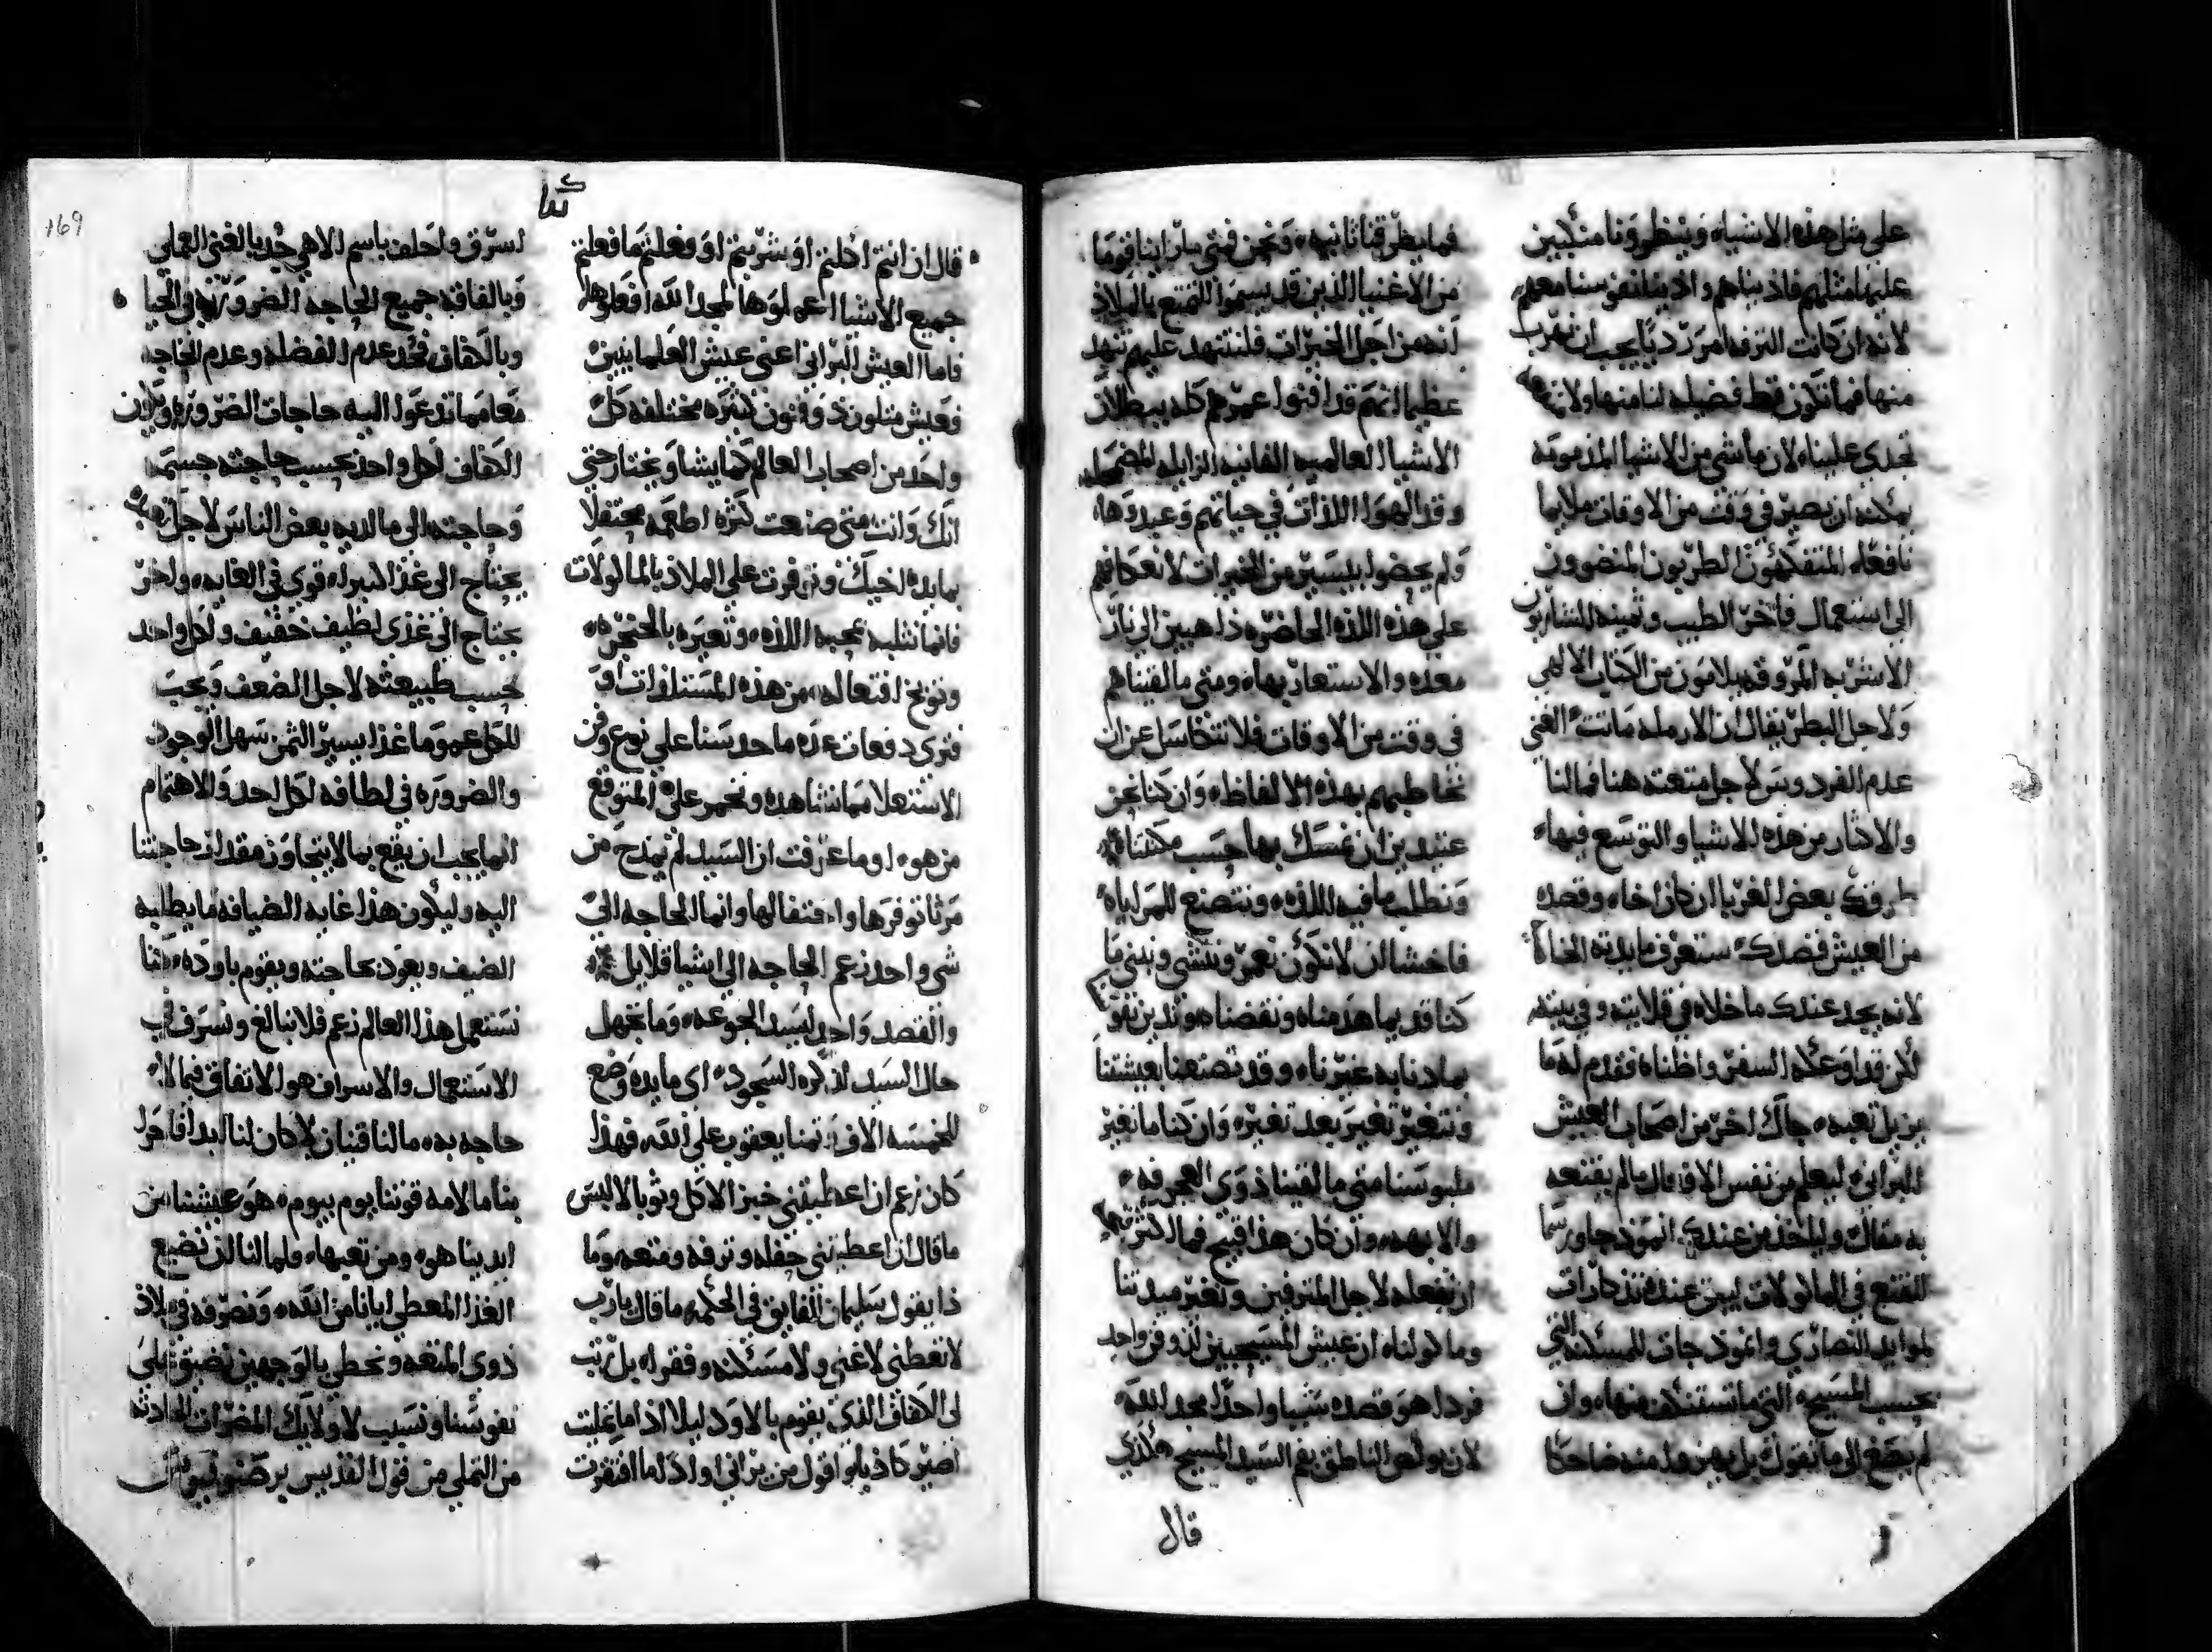 على مثل هذه الاشياء وينظرونا منكبين
عليها مثلهم فاذيناهم واذينا نفوسنا معهم
لانه ان كانت الترفه امر ردياً يجب ان نهرب
منها فما تكون قط فضيله لنا منها ولا
تجدي علينا لان ما شي من الاشيا المذمومه
يمكنه ان يصير في وقت من الاوقات ملايما
نافعاً المتفكهون الطربون المنضوون
الى استعمال فاخر الطيب
الاشربه المروقه يلامون من الكتاب الالهي
ولاجل البطر يقال ان الارمله ماتت الغني
عدم الفردوس لاجل متعته هنا فمالنا
والاكثار من هذه الاشيا والتوسع فيها
طرقك بعض الغربا ان كان اخاً وقصده
من العيش قصدك ستعرف مايدته
لانه يجد عندك ما خلاه في قلايته وفي بيته
لكن قد اوعكه السفر واظناه فقدم له ما
يزيل تعبه جاك اخر من اصحاب العيش
البراني ليعلم من نفس الافعال ما لم يقنعه
به مقالك ولياخذ من عندك انموذجا ورسما
للتقنع في الماكولات ليبق عنده تذكارات
لموايد النصارى وانموذجات للمسكنه التي
بحسب المسيح التي ما تستنكف منها وان
لم يصغ الى ما نقول بل يهزو به منه ضاحكا
فما يطرقنا ثانيه ونحن فمتى ما راينا قوما
من الاغنيا الذين قد يسموا التمتع بالملاذ
انه من اجل الخيرات فلنتنهد عليهم تنهد
عظيما انهم قد افنوا عمرهم كله يبطلان
الاشيا العالميه الفانيه الزايله المضمحله
وقد الهوا اللذات في حياتهم وعبدوها
ولم يحضوا بيسير من الخيرات لانعكافهم
على هذه اللذه الحاضره ذاهبين الى نار
معده والاستعار بها ومتى ما القيناهم
في وقت من الاوقات فلا نتكاسل عن ان
نخاطبهم بهذه الالفاظ وان كنا نحن
عتيدين ان نمسك بها حسب مكنتنا
ونطلب ما فيه اللذه ونتصنع للمراياه
فاخشا ان لا نكون نعمر وننشي ونبني ما
كنا قديما هدمناه ونقضناه وندين نفوسنا
بما دنا به غيرنا وقد تصنعنا بعيشتنا
ونتغير تغيير بعد تغيره وان كنا ما نغير
ملبوسنا متى ما لقينا ذوي العجرفه
والابهه وان كان هذا قبيح فما اكثر قبحا
ان نفعله لاجل المترفين ونغير ميدتنا
وما كولناه ان عيش المسيحيين لذو فن واحد
فرد اهو قصده شيا واحداً مجد الله
لان بولص الناطق بفم السيد المسيح هكذى
قال
كتا
169
قال ان انتم اكلتم او شربتم او فعلتم ما فعلتم
جميع الاشيا اعملوها لمجد الله افعلوها
فاما العيش البراني اعني عيش العلمانيين
فعيش متلون ذو فنون كثيره مختلفه كل
واحد من اصحاب العالم كما يشا ويختار حتى
انك وانت متى صنعت كثره اطعمه محتفلا
بمايدة اخيك وتوفرت على الملاذ بالماكولات
فانما تثلبه بمحبه اللذه وتعيره بالحنجره
وتوبخ افتعاله من هذه المستلذات او
فترى دفعات عده ما حد سنا على نوع وفن
الاستعلا مما نشاهده ونخمر على المتوقع
من هو او ما عرفت ان السيد لم يمدح من
مرثا توفرها واحتفالها وانما الحاجه الى
شي واحد زعم الحاجه الى اشيا قلايل
والقصد واحد لسد الجوعه وما تجهل
حال السيد لذكره السجود اي مايده وضع
للخمسه الالاف تمنا يعقوب على الله فهذا
كان زعم ان اعطيتني خبز الاكل وثوبا لالبس
ما قال ان اعطيتني حفله وترفه ومتعه وما
ذا يقول سليمان الفايق في الحكمه ما قال يا رب
لا تعطني لا غني ولا مسكنه وفقرا بل رتب
لي الكفاف الذي يقوم بالاود ليلا اذا ما تمليت
اصير كاذبا واقول من يراني او اذا ما افتقرت
اسرق واحلف باسم الاهي جد بالغني التملي
وبالفاقه جميع الحاجه الضروريه في الحيا
وبالكفاف فحد عدم الفضله وعدم الحاجه
معا مما تدعوا اليه حاجات الضروره وتكون
الكفاف لكل واحد بحسب حاجته جسمه
وحاجته الى ما لديه بعض الناس لاجل
يحتاج الى غذا كبير قوي في الغايه واخر
يحتاج الى غذى لطيف خفيف ولكل واحد
بحسب طبيعته لاجل الضعف ويجب
للكل عموما غذا يسير الثمن سهل الوجود
والضروره في لطافه لكل احد والاهتمام
انما يجب ان يقع بما لا يتجاوز مقدار حاجتنا
اليه وليكون هذا غايه الضيافه ما يطلبه
الضيف ويعود بحاجته ويقوم باوده
نستعمل هذا العالم زعم فلا نبالغ ونسرف في
الاستعمال والاسراف هو الانفاق فيما لا
حاجه به ما لنا قنيان لا كان لنا ابدا
بنا ما لامه قوتنا يوم بيوم هو عيشنا من
ايدينا هو ومن تعبها فلما لنا ان نضيع
الغذا المعطى ايانا من الله ونصرفه في ملاذ
ذوي المتعه ونخطي بالوجهين نضيق على
نفوسنا ونسبب لاولايك المضرات الحادثه
من التملي من قول القديس